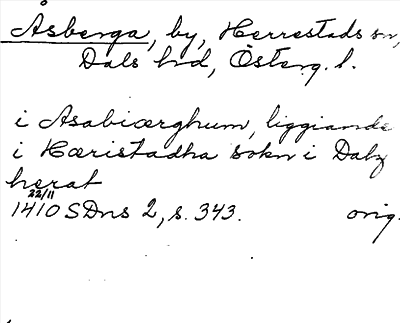 Åsberga, by, Herrestads sn,
Dals hd, Österg. l.
i Asabiærghum, liggiande
i Hæristadha sokn i Dalz
herat
22/11
1410 SDns 2, s. 343. orig.